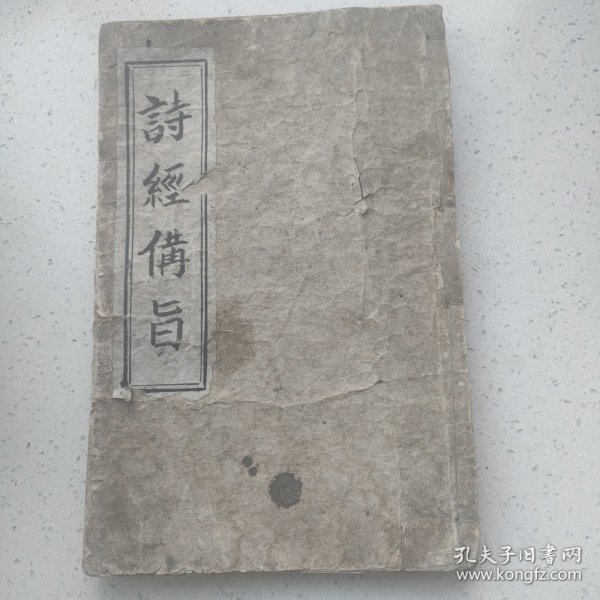 詩經備旨
孔夫子旧书网
www.kongfz.com